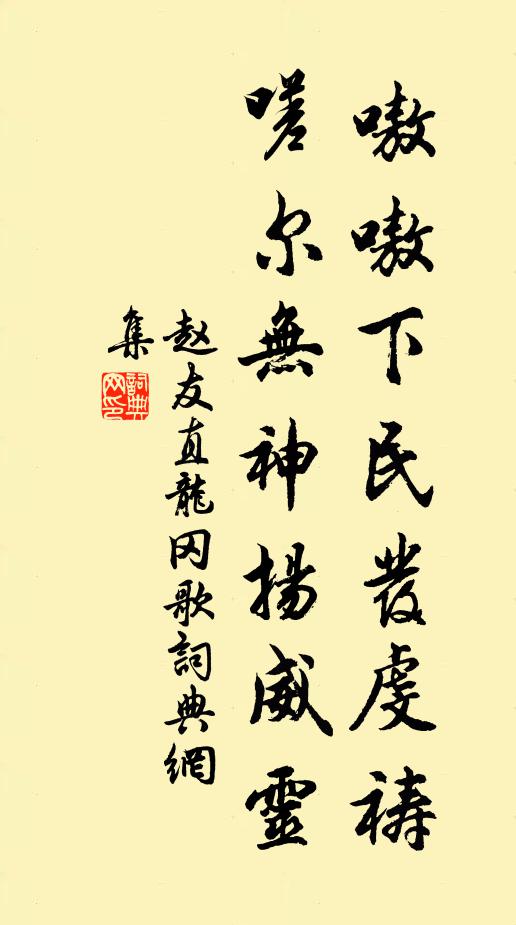 嗷嗷下民發虔祷
嗟尔無神揚威靈
赵友直龍冈歌詞典網
集
詞典
网印